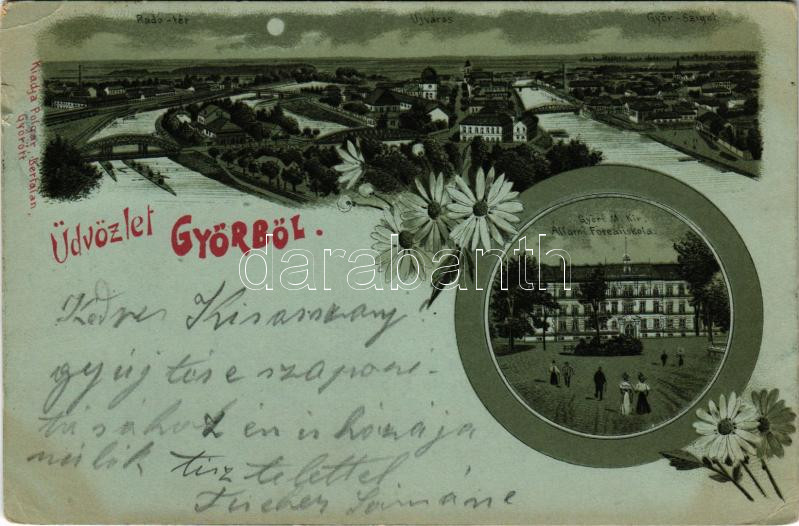 Radó-tér
Ujváros
Győr-Sziget
Kiadja Polgár Bertalan, Győrött
Üdvözlet GYŐRBŐL.
Győri M. Kir.
Állami Főreáliskola.
darabanth
Kedves Kisasszony!
gyűjtése szaporí-
tásához én is hozzája
rulok tisztelettel
Fischer